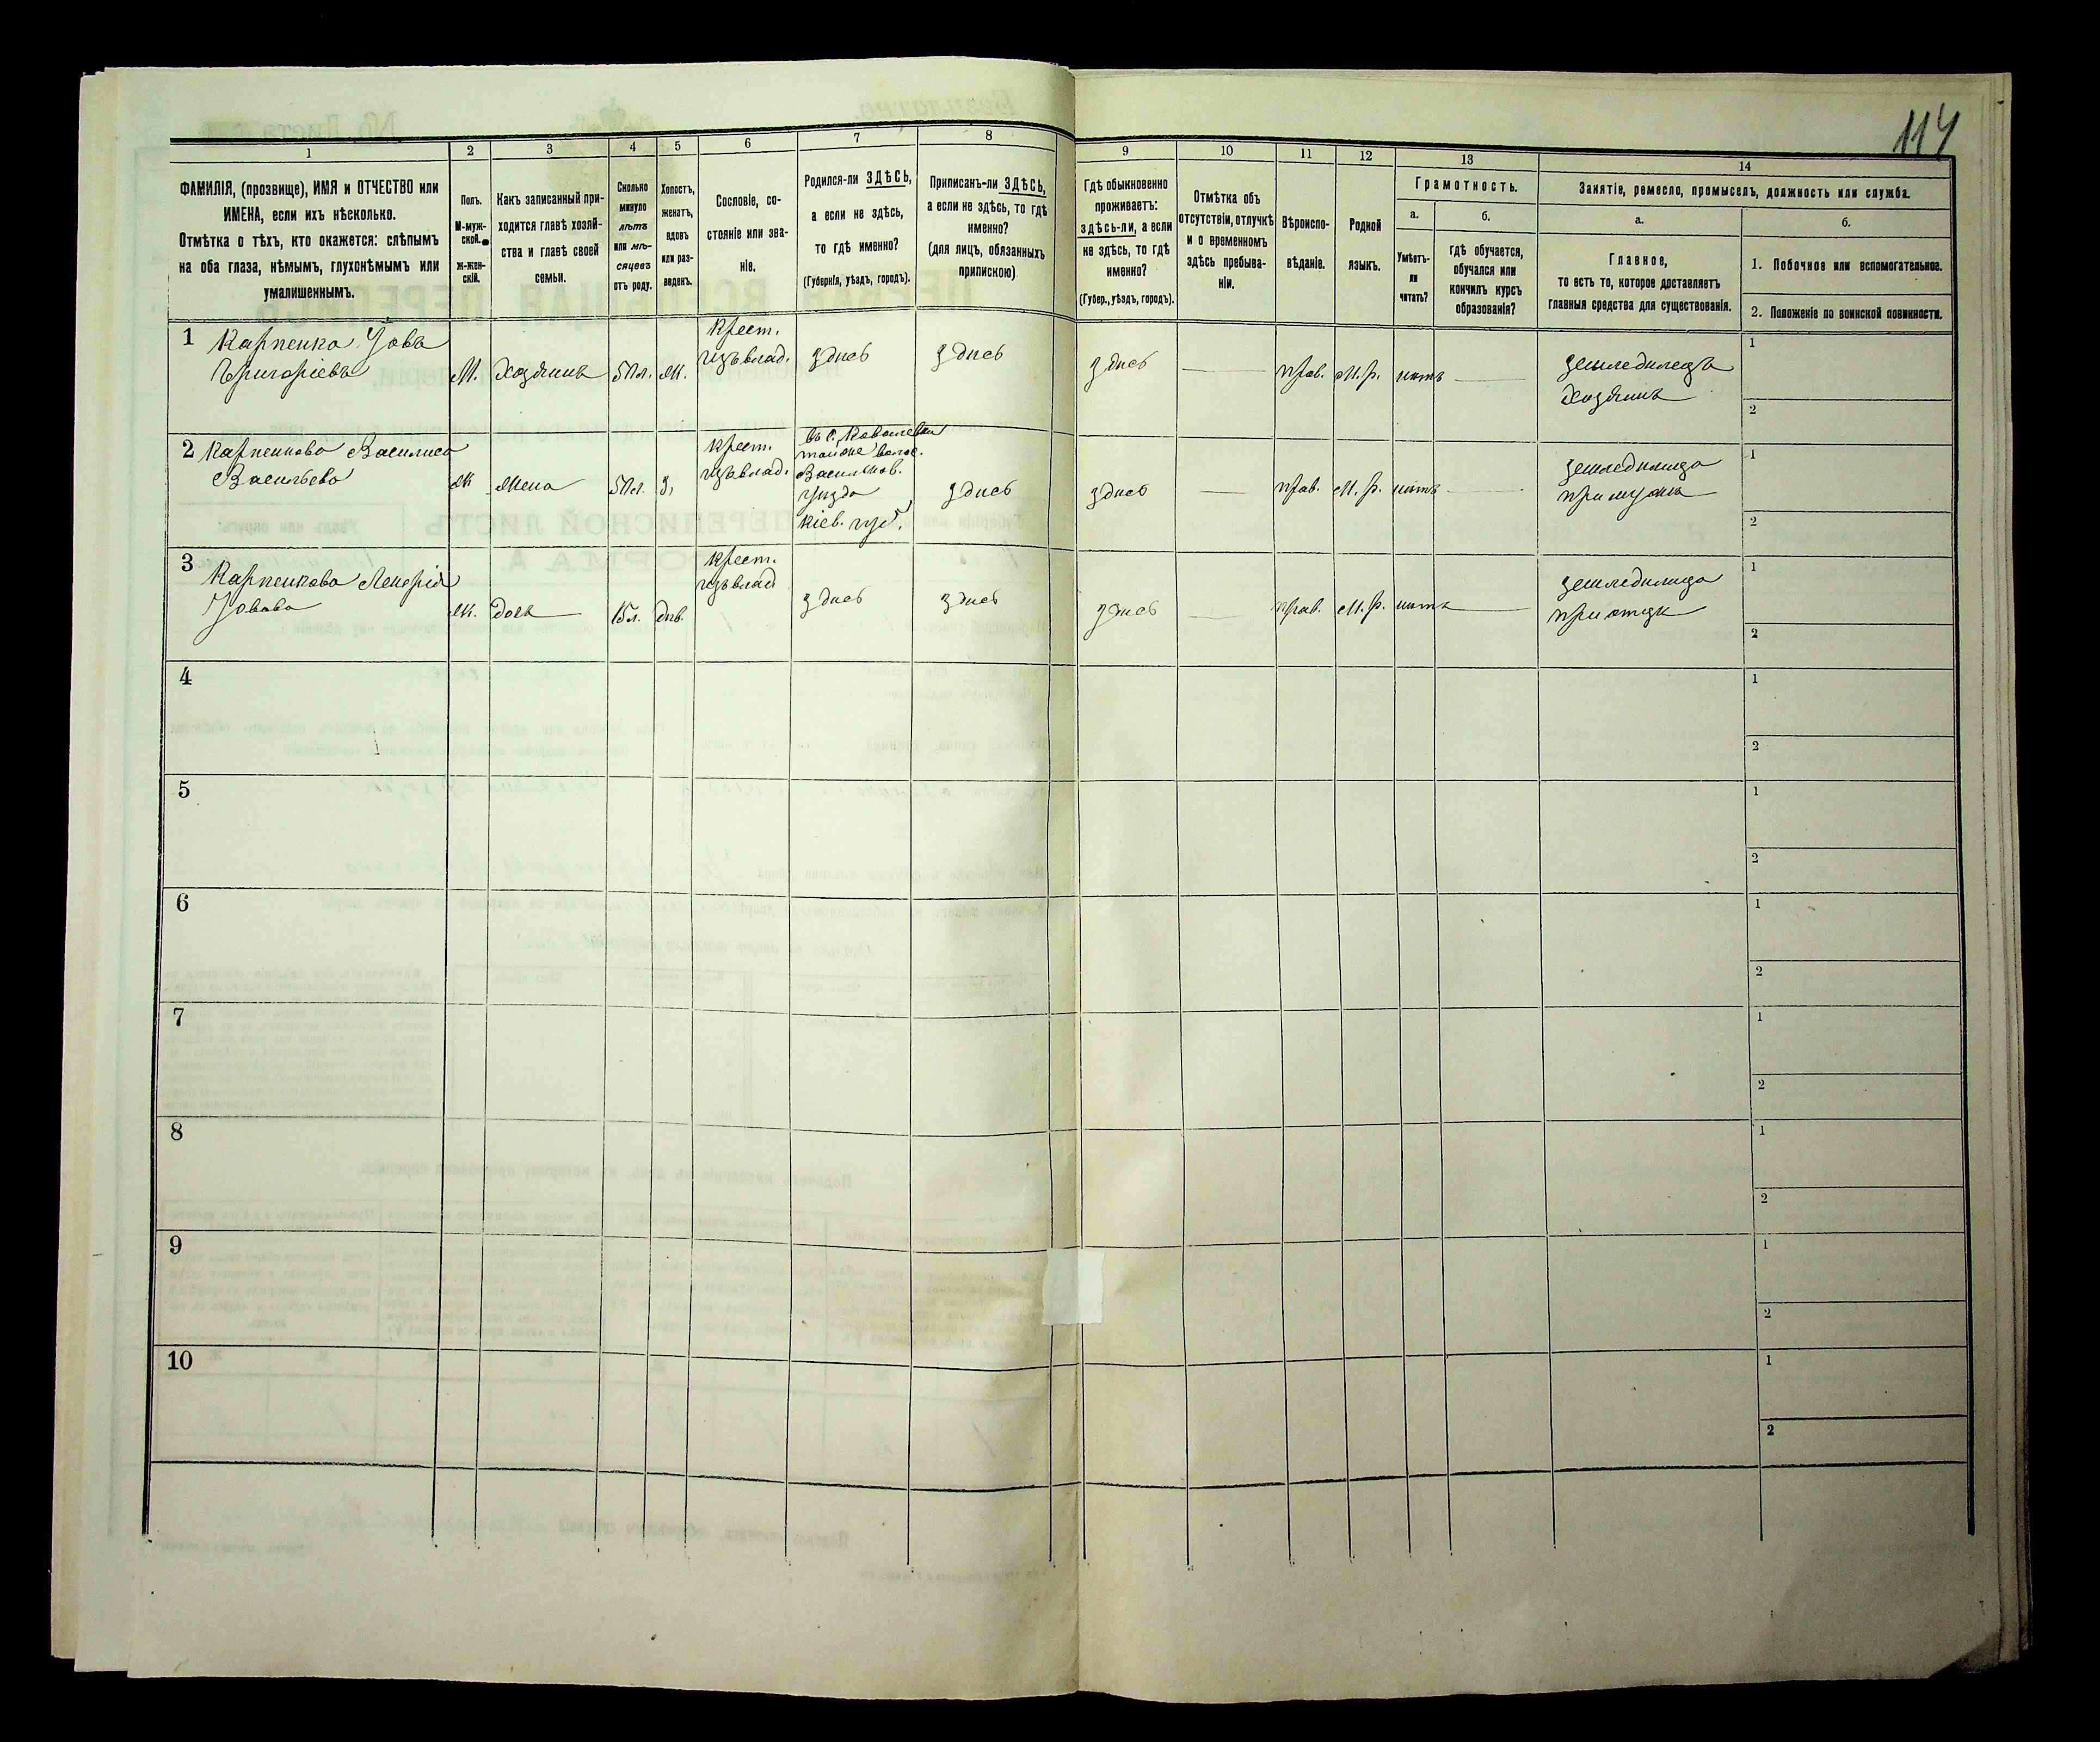 114
1
2
3
4
5
6
7
8
9
10
11
12
13
14
ФАМИЛІЯ, (прозвище), ИМЯ и ОТЧЕСТВО или
ИМЕНА, если ихъ нѣсколько.
Отмѣтка о тѣхъ, кто окажется: слѣпымъ
на оба глаза, нѣмымъ, глухонѣмымъ или
умалишеннымъ.
Полъ.
М-муж-
ской.
Ж-жен-
скій.
Какъ записанный при-
ходится главѣ хозяй-
ства и главѣ своей
семьи.
Сколько
минуло
лѣтъ
или мѣ-
сяцевъ
отъ роду.
Холостъ,
женатъ,
вдовъ
или раз-
веденъ.
Сословіе, со-
стояніе или зва-
ніе.
Родился-ли ЗДѢСЬ,
а если не здѣсь,
то гдѣ именно?
(Губернія, уѣздъ, городъ).
Приписанъ-ли ЗДѢСЬ,
а если не здѣсь, то гдѣ
именно?
(для лицъ, обязанныхъ
припискою)
Гдѣ обыкновенно
проживаетъ:
здѣсь-ли, а если
не здѣсь, то гдѣ
именно?
(Губер., уѣздъ, городъ).
Отмѣтка объ
отсутствіи, отлучкѣ
и о временномъ
здѣсь пребыва-
ніи.
Вѣроиспо-
вѣданіе.
Родной
языкъ.
Грамотность.
а.
Умѣетъ-
ли
читать?
б.
гдѣ обучается,
обучался или
кончилъ курсъ
образованія?
Занятіе, ремесло, промыселъ, должность или служба.
а.
Главное,
то есть то, которое доставляетъ
главныя средства для существованія.
б.
1. Побочное или вспомогательное.
2. Положеніе по воинской повинности.
1 Карпенко Іовъ
Григоріевъ
М. Хозяинъ 57л. Ж.
Крест.
изъ влад.
здѣсь здѣсь здѣсь — прав. М.р. нѣтъ —
земледѣлецъ
Хозяинъ
1
2
2 Карпенкова Василиса
Васильева
Ж Жена 57л. З.
Крест.
изъ влад.
въ с. Ковалевки
тойже волос.
Васильков.
уѣзда
Кіев. губ.
здѣсь здѣсь — прав. М.р. нѣтъ —
земледѣлица
при мужѣ
1
2
3 Карпенкова
Іовова
Ж. дочь 15л. дѣв.
Крест.
изъ влад
здѣсь здѣсь здѣсь — прав. М.р. нѣтъ —
земледѣлица
при отцѣ
1
2
4
1
2
5
1
2
6
1
2
7
1
2
8
1
2
9
1
2
10
1
2